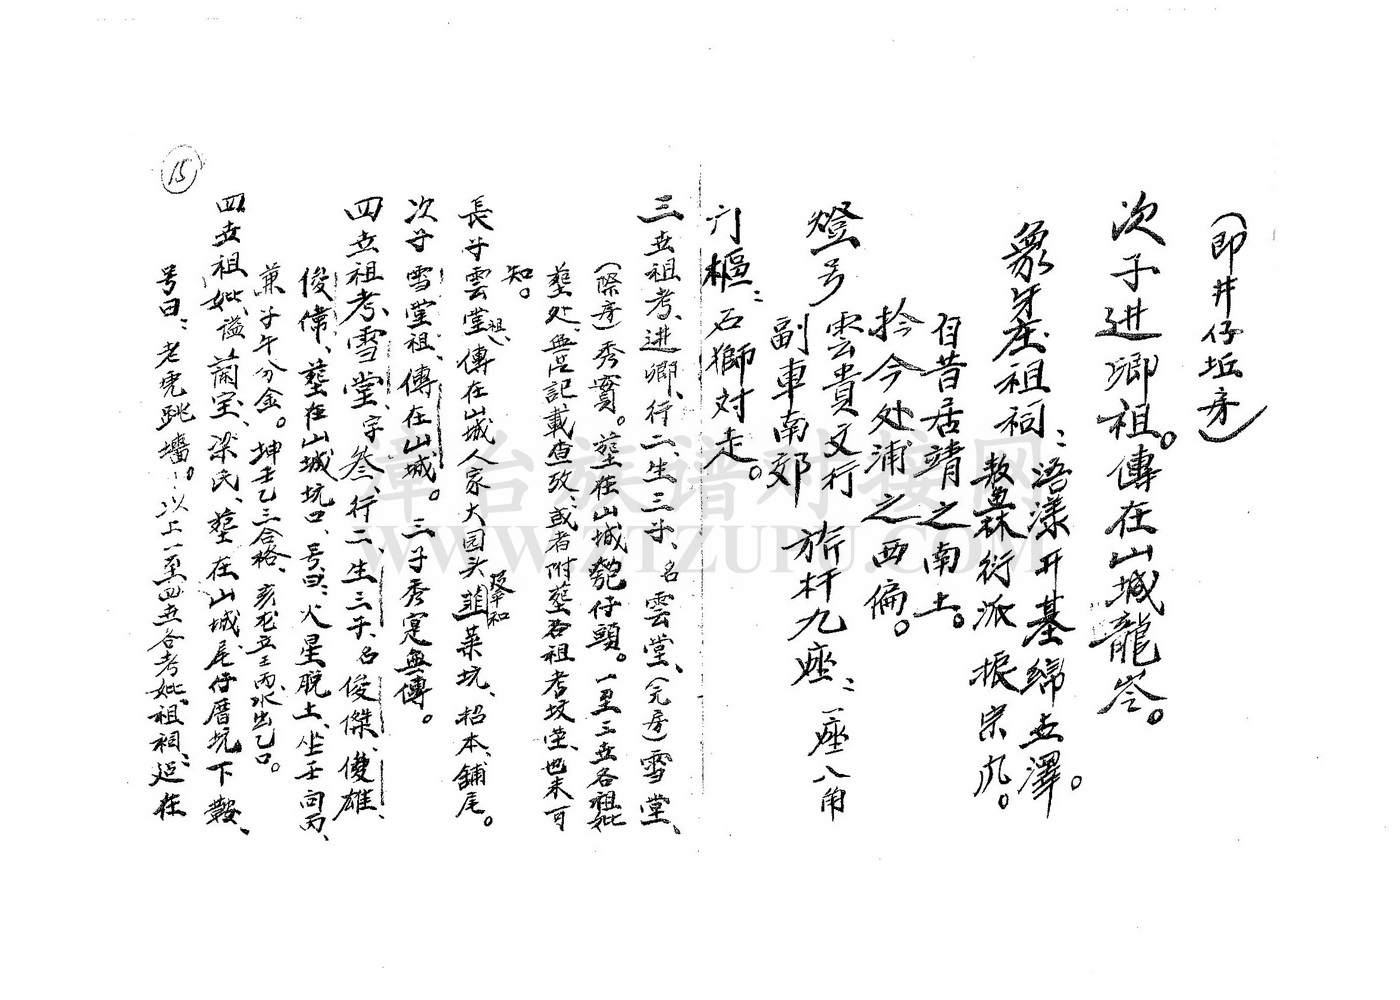 (即井仔坵房)
次子进卿祖。傳在山城龍岺。
象牙庄祖祠:浯漾开基綿世澤。
敖林衍派振宗风。
自昔居靖之南土。
於今处浦之西偏。
燈号 雲貴文行 旂杆九座:一座八角
副車南郊
门樞:石獅对走。
三世祖考、进卿、行二、生三子、名雲堂、(元房)雪堂、
(際房)秀實。塟在山城 仔頭。一至三世各祖妣
塟处、無记記載查攷、或者附塟各祖考坟堂、也未可
知。
長子雲堂祖、傳在山城人家大园头韮菜坑、招本、舖尾。
及平和
次子雪堂祖、傳在山城。三子秀寔無傳。
四世祖考雪堂、字叁、行二、生三子、名俊傑、俊雄、
俊偉、塟在山城坑口、号曰:火星脱土、坐壬向丙、
兼子午分金。坤壬乙三合格、亥龙立壬丙、水出乙口。
四世祖妣谥蘭室、梁氏、塟在山城、尾仔厝坑下 、
号曰:老虎跳墻。以上一至四世各考妣、祖祠、述在
15
漳台族谱对接网
WWW.ZTZUPU.COM